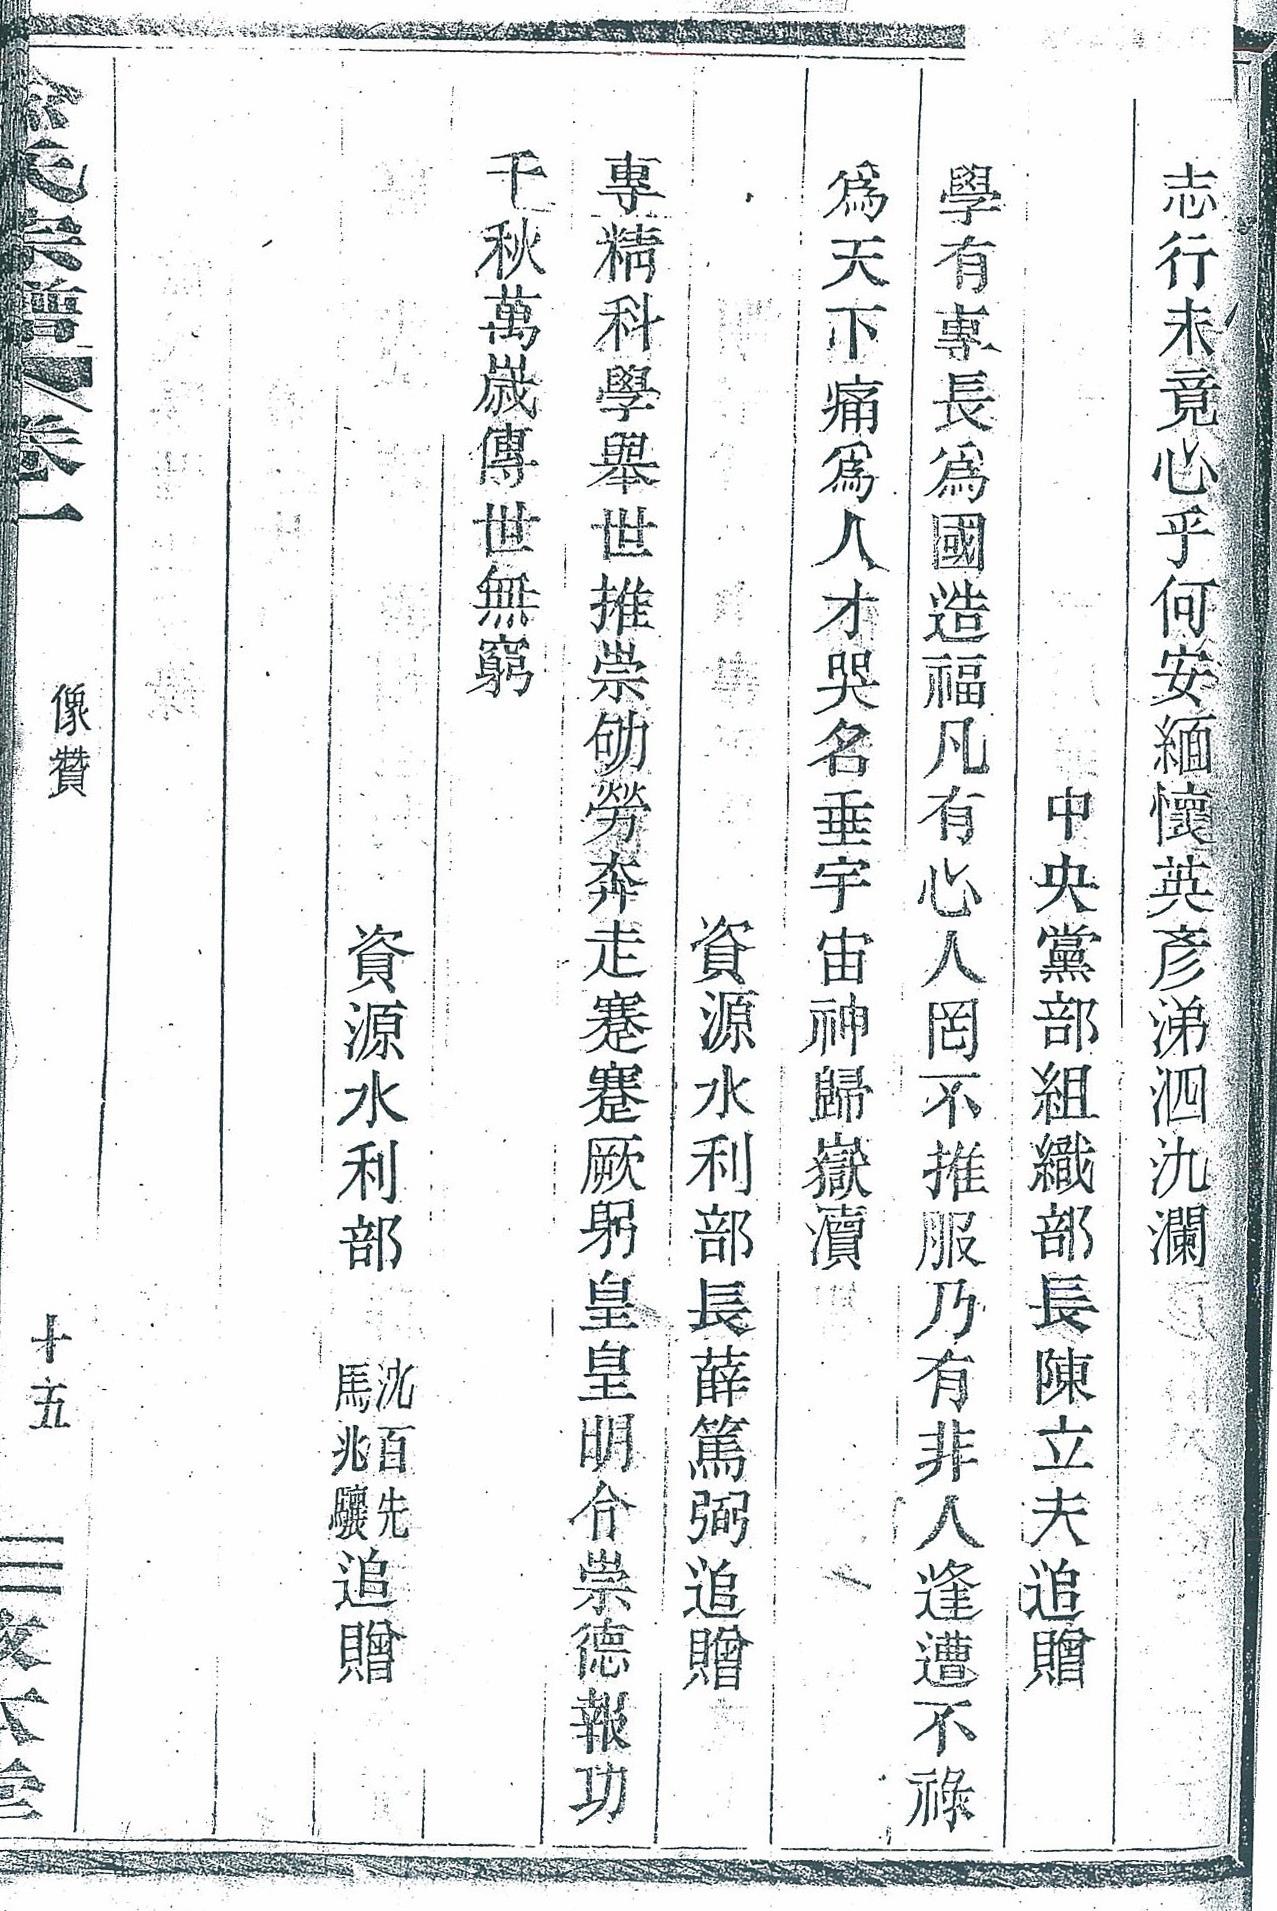 志行未竟心乎何安緬懷英彥涕泗汍瀾
中央黨部組織部長陳立夫追贈
學有專長爲國造福凡有心人罔不推服乃有非人逢遭不祿
爲天下痛爲人才哭名垂宇宙神歸嶽瀆
資源水利部長薛篤弼追贈
專精科學舉世推崇劬勞奔走蹇蹇厥躬皇皇明令崇德報功
千秋萬歲傳世無窮
資源水利部
沈百先
馬兆驤
追贈
氏宗譜 卷一
像贊
十五
三敬本堂